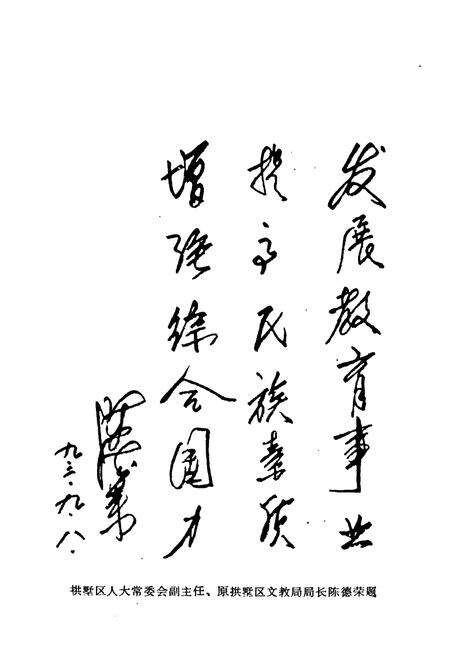 发展教育事业
提高民族素质
增强综合国力
陈德荣
九三.九.八.
拱墅区人大常委会副主任、原拱墅区文教局局长陈德荣题